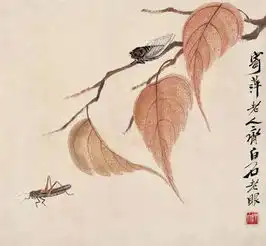 寄萍老人齊白石老眼